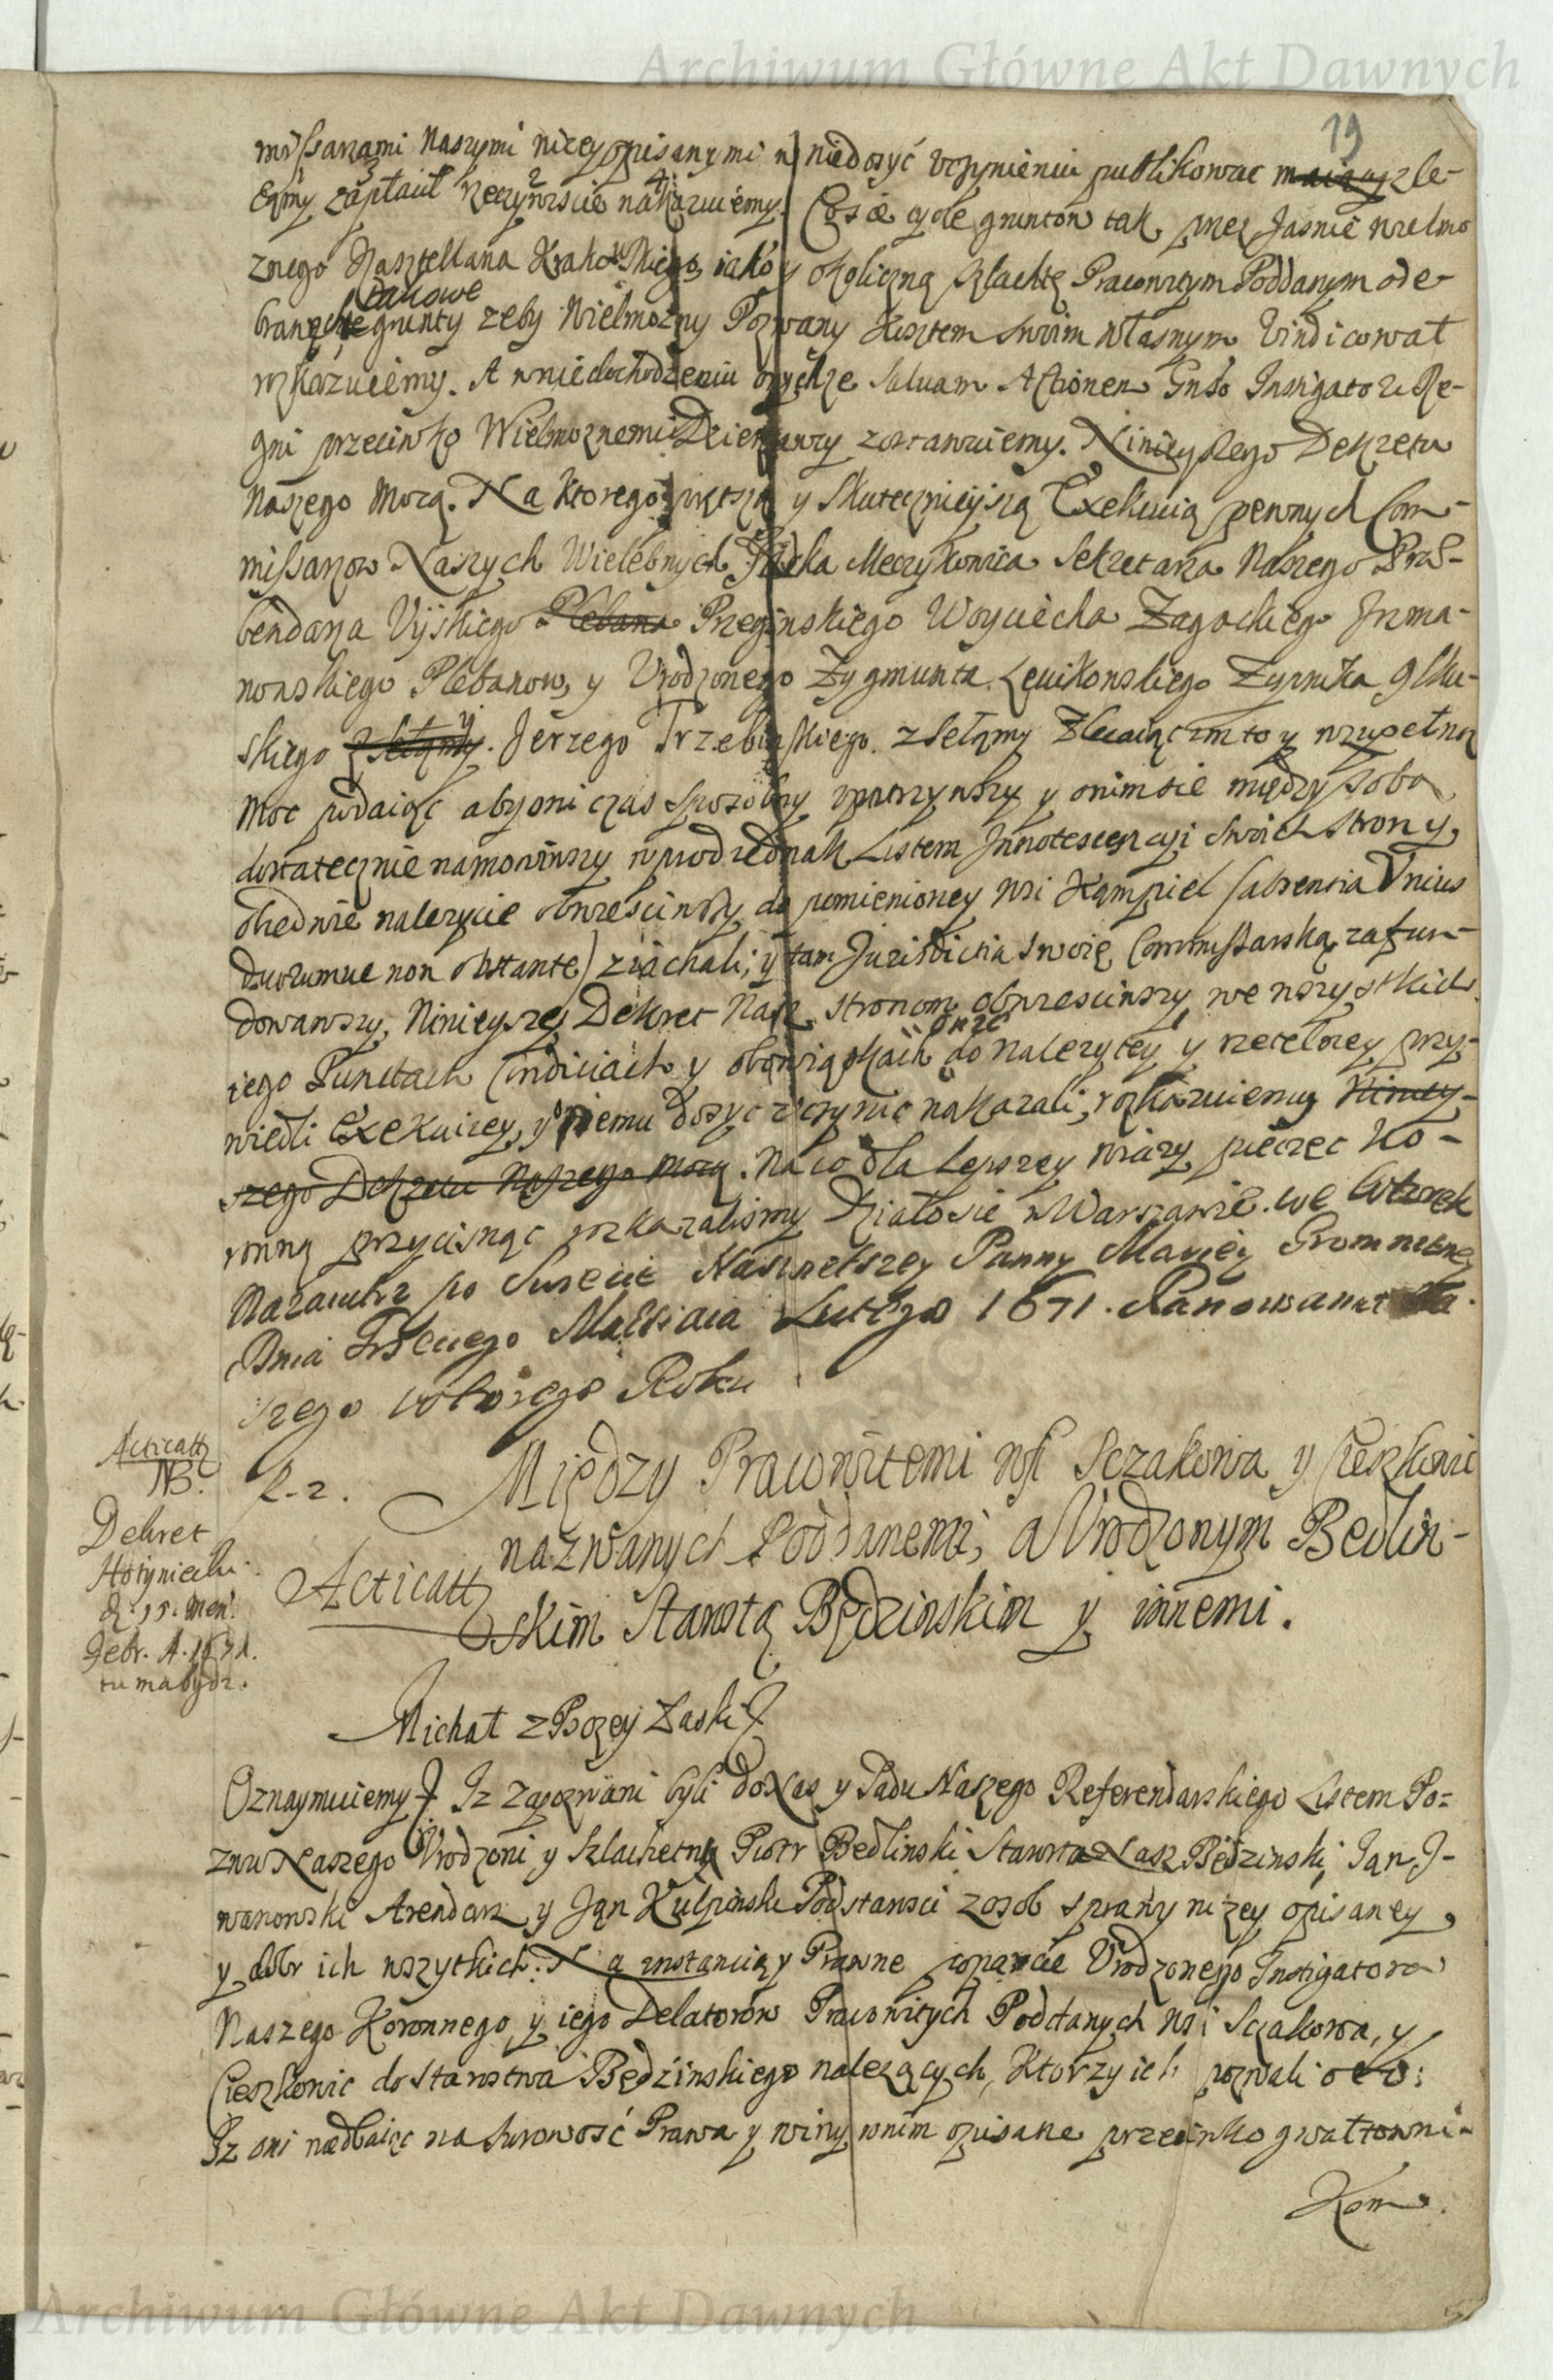 Archiwum Główne Akt Dawnych
19
missarzami Naszymi nizey opisanymi w niedosyć vczynieniu publikowac maiący zle-
camy zapłacił rzeczywiscie nakazuiemy. Co sie tycze gruntow tak przez Jasnie Wielmo
znego Kasztellana Krakowskiego, iako y okoliczną szlachtę Pracowitym Poddanym ode-
branych takowe grunty zeby Wielmozny Pozwany kosztem swoim własnym Vindicował
wskazuiemy. A w niedochodzeniu onychze saluam Actionem Gnso Instigatori Re-
gni przeciwko Wielmoznemu Dzierzawcy zostawuiemy. Ninieyszego Dekretu
Naszego mocą. Na ktorego prętszą y skutecznieyszą Exekucią pewnych Com-
missarzow Naszych Wielebnych Meczykowica Sekretarza Naszego Prae-
bendarza Vyskiego Plebana Przeginskiego Woyciecha Zagockiego
Plebanow, y Vrodzonego Zygmunta Zupnika Olku-
skiego zsełamy y Jerzego Trzebinskiego zsełamy Zlecaiąc im to y wzupełną
moc podaiąc aby oni czas sposobny vpatrzywszy y onim sie między sobą
dostatecznie namowiwszy wprzod iednak Listem Innotescencyi swoiej strony
obiedwie nalezycie obwiesciwszy do pomienioney wsi Kąmpiel (absentia Vnius
duorumue non obstante) ziachali; y tam Jurisdictią swoię Commissarską zafun-
dowawszy, Ninieyszy Dekret Nasz stronom obwiesciwszy we wszystkich
iego Punctach Condiciach y obowiązkach do nalezytey y rzetelney przy-
wiedli Exekucyey, y oniemu dosyc vczynic nakazali, rozkazuiemy Niniey-
szego Dekretu Naszego mocą. Na co dla lepszey wiary pieczęc Ko-
ronną przycisnąc rozkazalismy Działo sie w Warszawie. we Wtorek
Nazaiutrz po Swięcie Naswietszey Panny Maryey Gromniczney
Dnia Trzeciego Miesiaca Lutego 1671. Panowania Na-
szego wtorego Roku
Acticatt
NB.
Dekret
d. 11. Men.
Febr. A. 1671.
tu ma bydz.
R. 2.
Między Pracowitemi wsi Sczakowa y Cieszkowic
nazwanych Poddanemi, a Vrodzonym Bedlin-
Acticatt
skim Starostą Będzinskim y innemi.
Michał z Bozey Łaski
Oznaymuiemy Iz zapozwani byli do Nas y Sądu Naszego Referendarskiego Listem Po-
zwu Naszego Vrodzoni y Szlachetny Piotr Bedlinski Starosta Nasz Będzinski, Jan I-
wanowski Arendarz y Jąn Kulpinski Podstarosci z osob sprawy nizey opisaney
y dobr ich wszytkich. Na instancią y Prawne poparcie Vrodzonego Instigatora
Naszego Koronnego y iego Delatorow Pracowitych Poddanych wsi Sczakowa, y
Cieszkowic do starostwa Będzinskiego nalezących, Ktorzy ich pozwali o to:
Iz oni niedbaiąc na surowosć Prawa y winy wnim opisane przeciwko gwałtowni-
kom.
Archiwum Główne Akt Dawnych